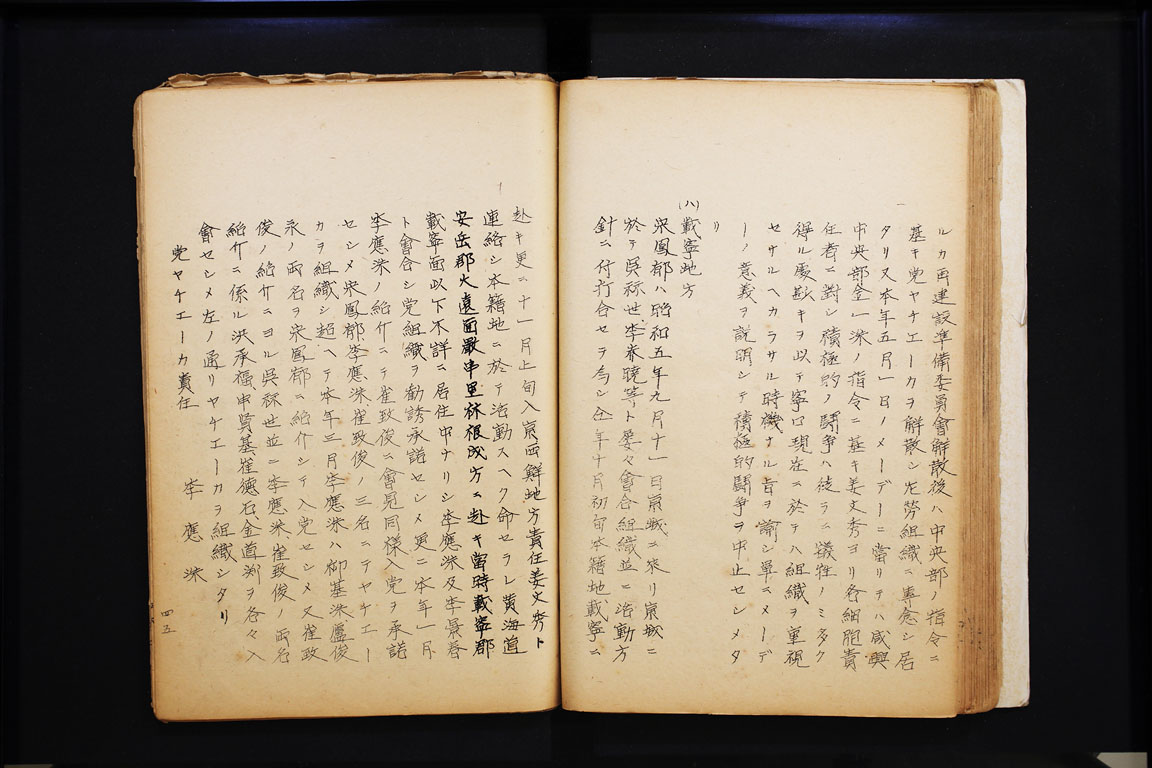 ルカ再建設準備委員會解散後ハ中央部ノ指令ニ
基キ党ヤチエーカヲ解散シ左労組織ニ專念シ居
タリ又本年五月一日ノメーデーニ當リテハ咸興
中央部金一洙ノ指令ニ基キ姜文秀ヨリ各細胞責
任者ニ對シ積極的ノ鬪争ハ徒ラニ犠牲ノミ多ク
得ル處歘キヲ以テ寧口現在ニ於テハ組織ヲ重視
セサルヘカラサル時機ナル旨ヲ諭シ單ニメーデ
ーノ意義ヲ説明シテ積極的鬪争ヲ中止セシメタ
リ
(八)載寧地方
宋鳳郁ハ昭和五年九月十一日京城ニ來リ京城ニ
於テ呉祘世李春曉等ト屡々會合組織並ニ活動方
針ニ付打合セヲ為シ仝年十月初旬本籍地載寧ニ
赴キ更ニ十一月上旬入京西鮮地方責任姜文秀ト
連絡シ本籍地ニ於テ活動スヘク命セラレ黄海道
安岳郡大遠面嚴串里林根成方ニ赴キ當時載寧郡
載寧面以下不詳ニ居住中ナリシ李應洙及李景春
ト會合シ党組織ヲ勧誘承諾セシメ更ニ本年一月
李應洙ノ紹介ニテ崔致俊ニ會見同様入党ヲ承諾
セシメ宋鳳郁李應洙崔致俊ノ三名ニテヤチエー
カヲ組織シ超ヘテ本年三月李應洙ハ柳基洙盧俊
永ノ両名ヲ宋鳳郁ニ紹介シテ入党セシメ又崔致
俊ノ紹介ニヨル呉祘世並ニ李應洙崔致俊ノ両名
紹介ニ係ル洪承福申賢基崔德石金道渕ヲ各々入
會セシメ左ノ通リヤチエーカヲ組織シタリ
党ヤチエーカ責任 李應洙
四五